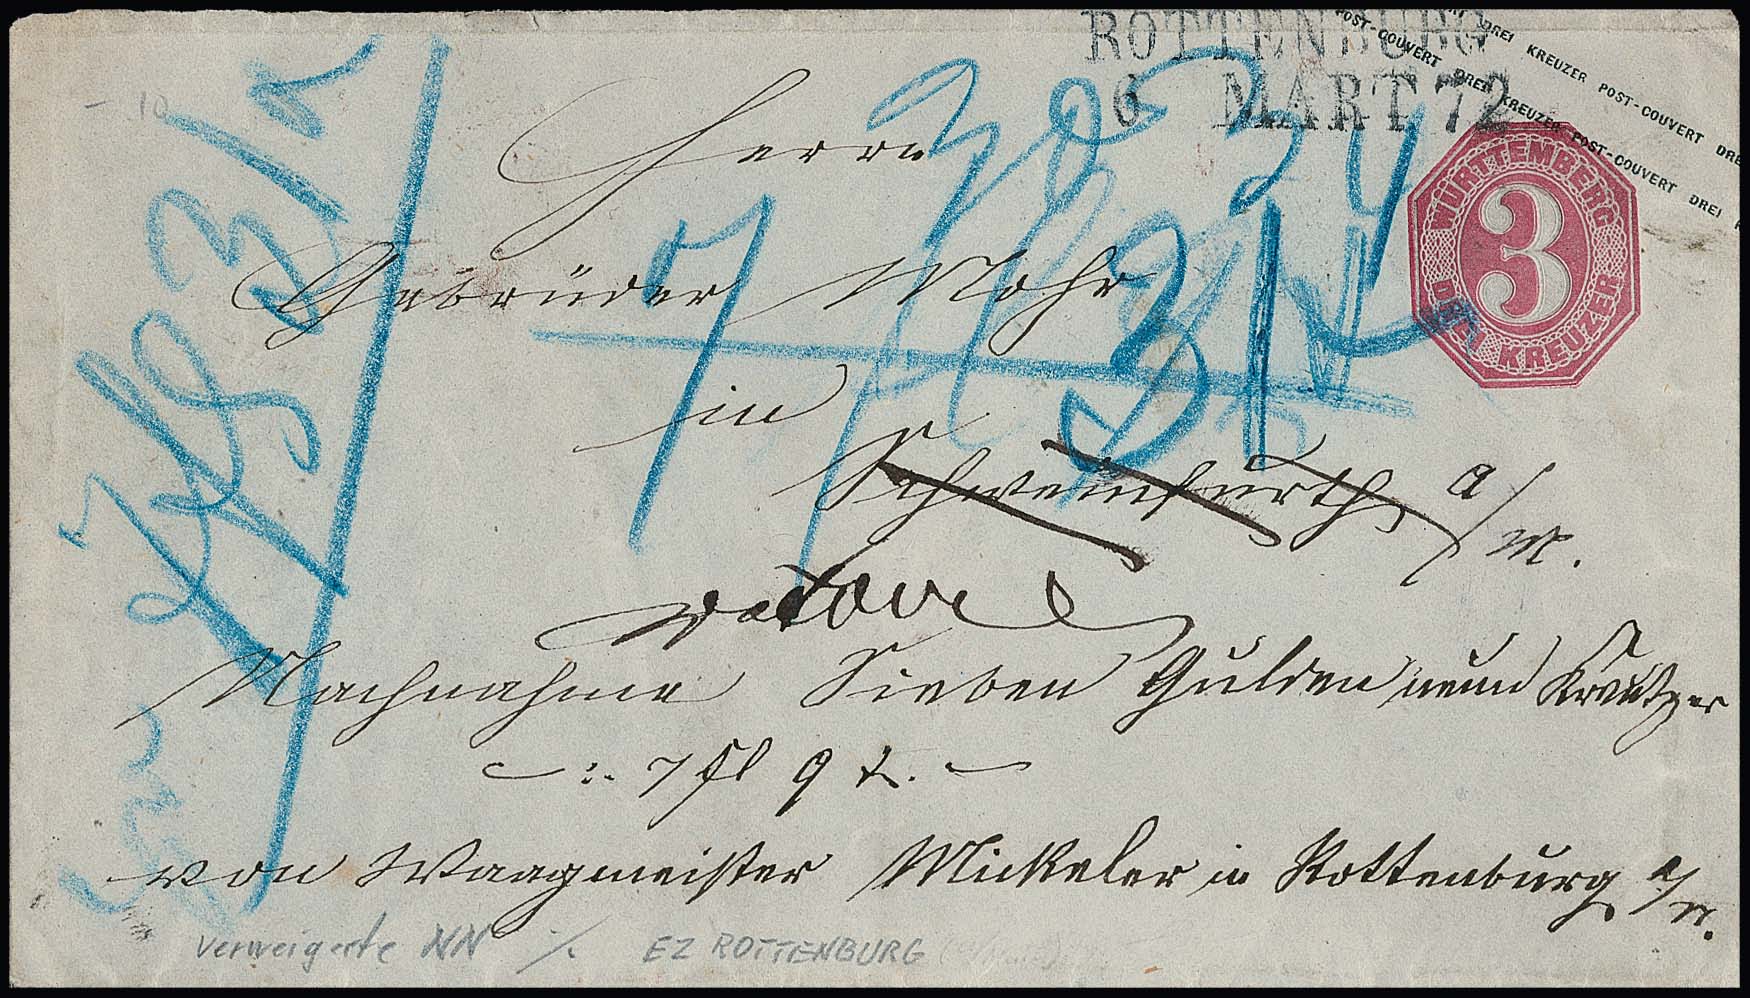 ROTTENBURG
6 MÄRT 72
DREI KREUZER POST-COUVERT DREI
POST-COUVERT DREI KREUZER POST-COUVERT DREI
WÜRTTEMBERG
3
DREI KREUZER
Herrn
Gebrüder Mohr
in
Schweinfurth a/M.
retour
Nachnahme Sieben Gulden neun Kreutzer
7 fl 9 x.
von Waagmeister Mickeler in Rottenburg a/N.
verweigerte NN
EZ ROTTENBURG